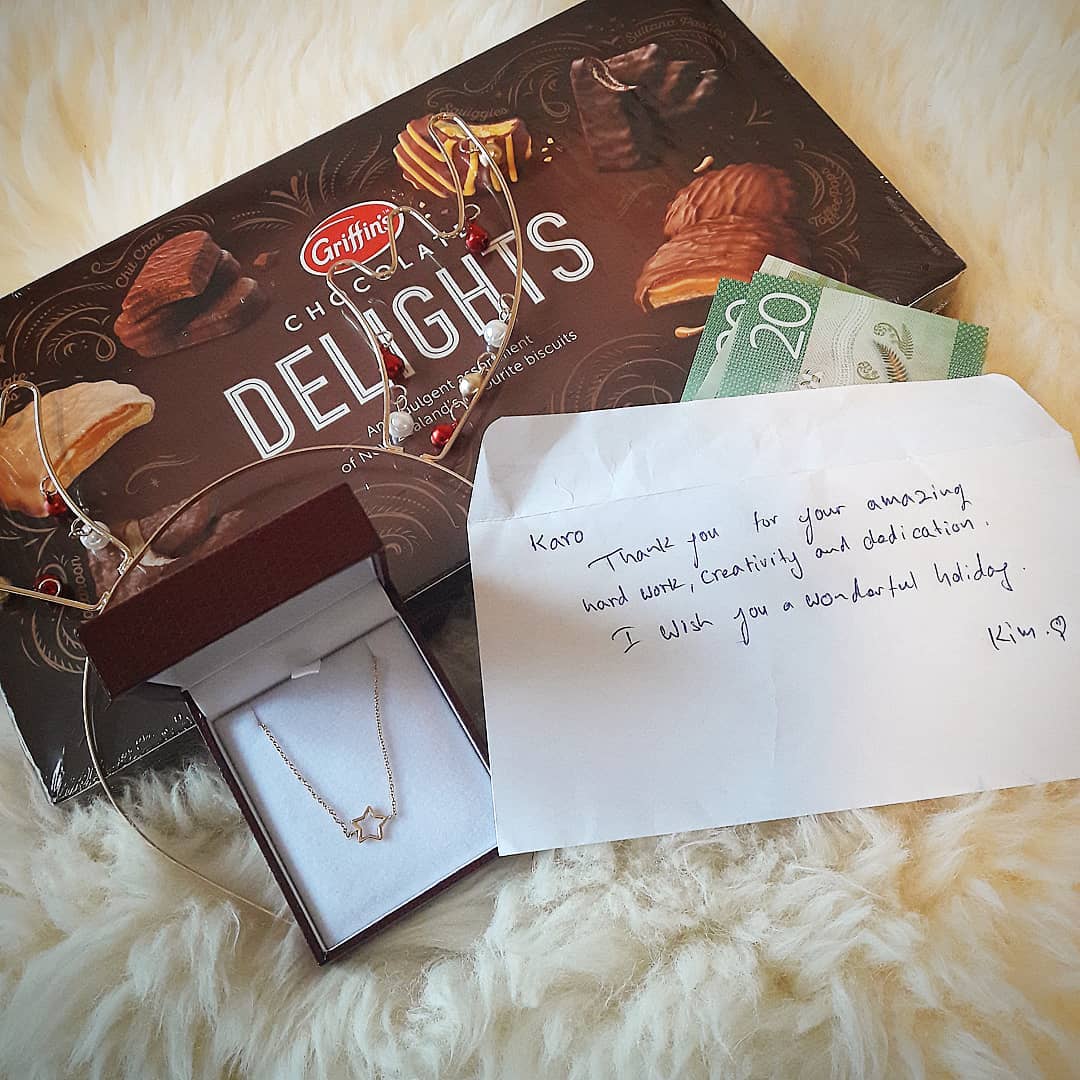 Sultana Pasties
Squiggles
Chit Chat
Griffin's
CHOCOLATE
DELIGHTS
An indulgent assortment
of New Zealand's favourite biscuits
20
20
Karo
Thank you for your amazing
hard work, creativity and dedication.
I wish you a wonderful holiday.
Kim.